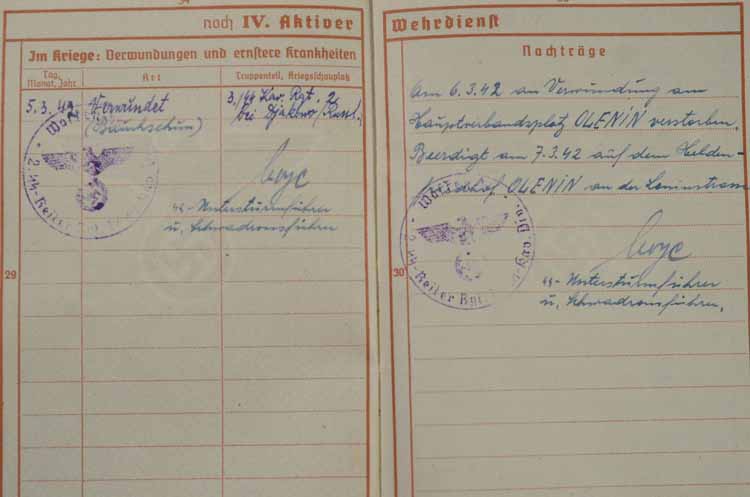 34
noch IV. Aktiver
Im Kriege: Verwundungen und ernstere Krankheiten
Tag, Monat, Jahr
Art
Truppenteil, Kriegsschauplatz
5.3.42
Verwundet
(Bauchschuss)
3./SS Kav. Rgt. 2
bei
SS-Untersturmführer
u. Schwadronsführer
2. SS-Reiter
29
Wehrdienst
Nachträge
Am 6.3.42 an Verwundung am
Hauptverbandsplatz OLENIN verstorben.
Beerdigt am 7.3.42 auf dem Helden-
OLENIN an der Leninstrasse
SS-Untersturmführer
u. Schwadronsführer.
2. SS-Reiter Rgt.
30